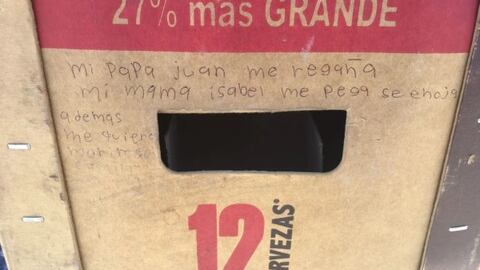 27% más GRANDE
mi papa juan me regaña
mi mama isabel me pega se enoja
ademas
me quiero
12
CERVEZAS*